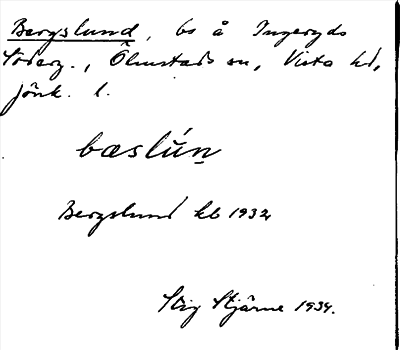 Bergslund, bs å Ingeryds
Söderg., Ölmstads sn, Vista hd,
Jönk. l.
bæslúṇ
Bergslund kb 1932
Stig Stjärne 1934.